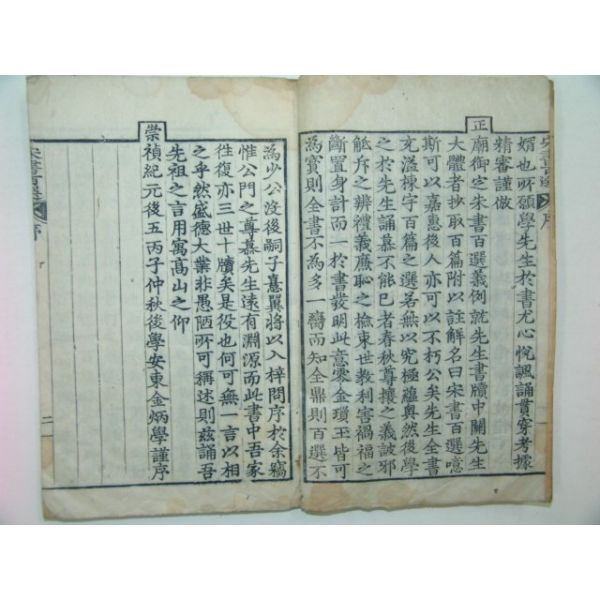 婿也所願學先生於書尤心悅諷誦貫穿考據
精審謹倣
正
廟御定朱書百選義例就先生書牘中關先生
大體者抄取百篇附以註解名曰宋書百選噫
斯可以嘉惠後人亦可以不朽公矣先生全書
充溢棟宇百篇之選若無以究極蘊奧然後學
之於先生誦慕不能已者春秋尊攘之義詖邪
觝斥之辨禮義廉恥之檢東世教利害禍福之
斷置身計而一於書發明此意零金瑣玉皆可
為寶則全書不為多一臠而知全鼎則百選不
為少公沒後嗣子憙翼將以入梓問序於余竊
惟公門之尊慕先生遠有淵源而此書中吾家
往復亦三世十牘矣是役也何可無一言以相
之乎然盛德大業非愚陋所可稱述則茲誦吾
先祖之言用寓高山之仰
崇
禎紀元後五丙子仲秋後學安東金炳學謹序
宋書百選
序
二